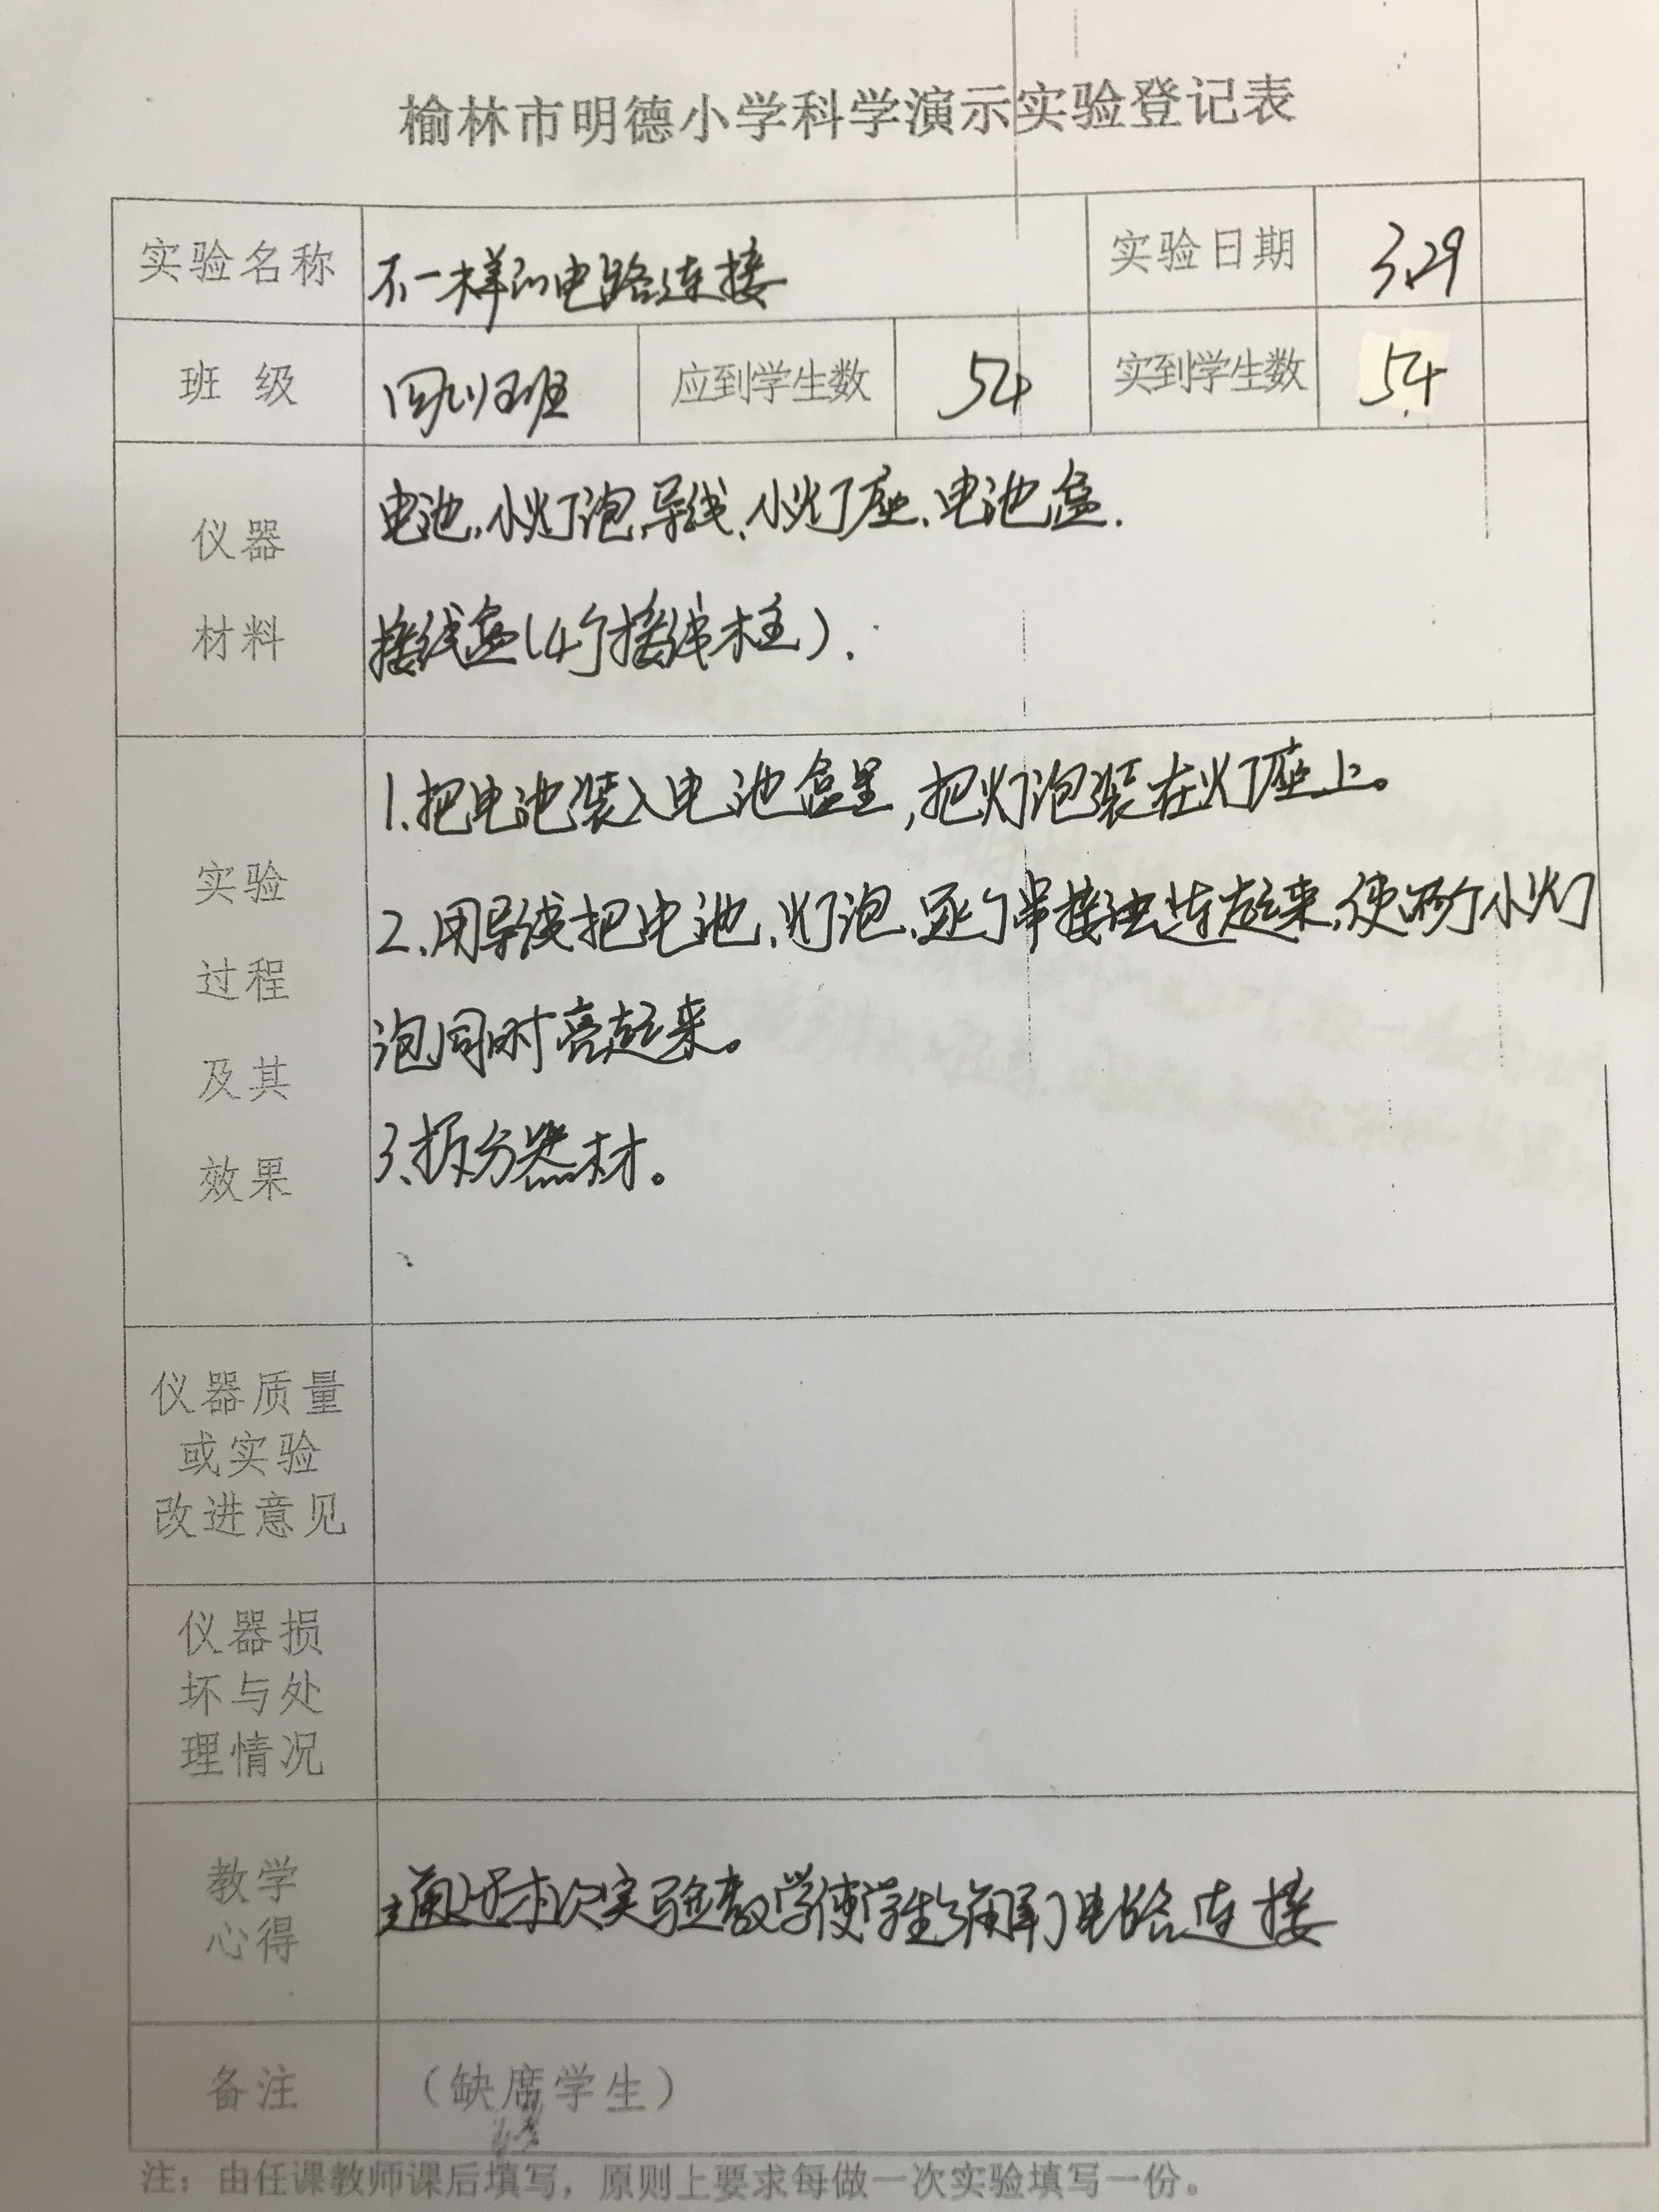 榆林市明德小学科学演示实验登记表
实验名称 不一样的电路连接 实验日期 3.29
班 级 四(1)班 应到学生数 54 实到学生数 54
仪器
材料
电池、小灯泡、导线、小灯座、电池盒.
接线盒(4个接线柱).
实验
过程
及其
效果
1.把电池装入电池盒里,把灯泡装在灯座上。
2、用导线把电池、灯泡、逐个串接连起来,使两个小灯
泡同时亮起来。
3、拆分器材。
仪器质量
或实验
改进意见
仪器损
坏与处
理情况
教学
心得
通过本次实验教学使学生了解了电路连接
备注 (缺席学生)
注:由任课教师课后填写,原则上要求每做一次实验填写一份。